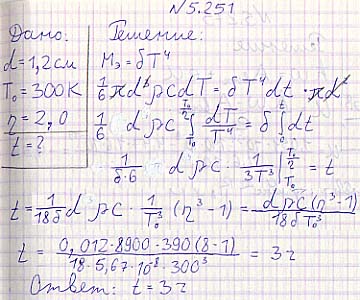 N 5.251
Дано:
d = 1,2 см
T₀ = 300 К
η = 2,0
t = ?
Решение:
Mэ = δT⁴
1/6 πd³ρcdT = δT⁴dt · πd²
1/6 d ρc ∫_{T₀}^{T₀/2} dT/T⁴ = δ ∫_0^t dt
1/(δ·6) d ρc · 1/(3T³) |_{T₀}^{T₀/2} = t
t = 1/(18δ) d ρc · 1/T₀³ (η³ - 1) = dρc(η³-1)/(18δT₀³)
t = 0,012·8900·390(8-1)/(18·5,67·10⁻⁸·300³) = 3 ч
Ответ: t = 3 ч